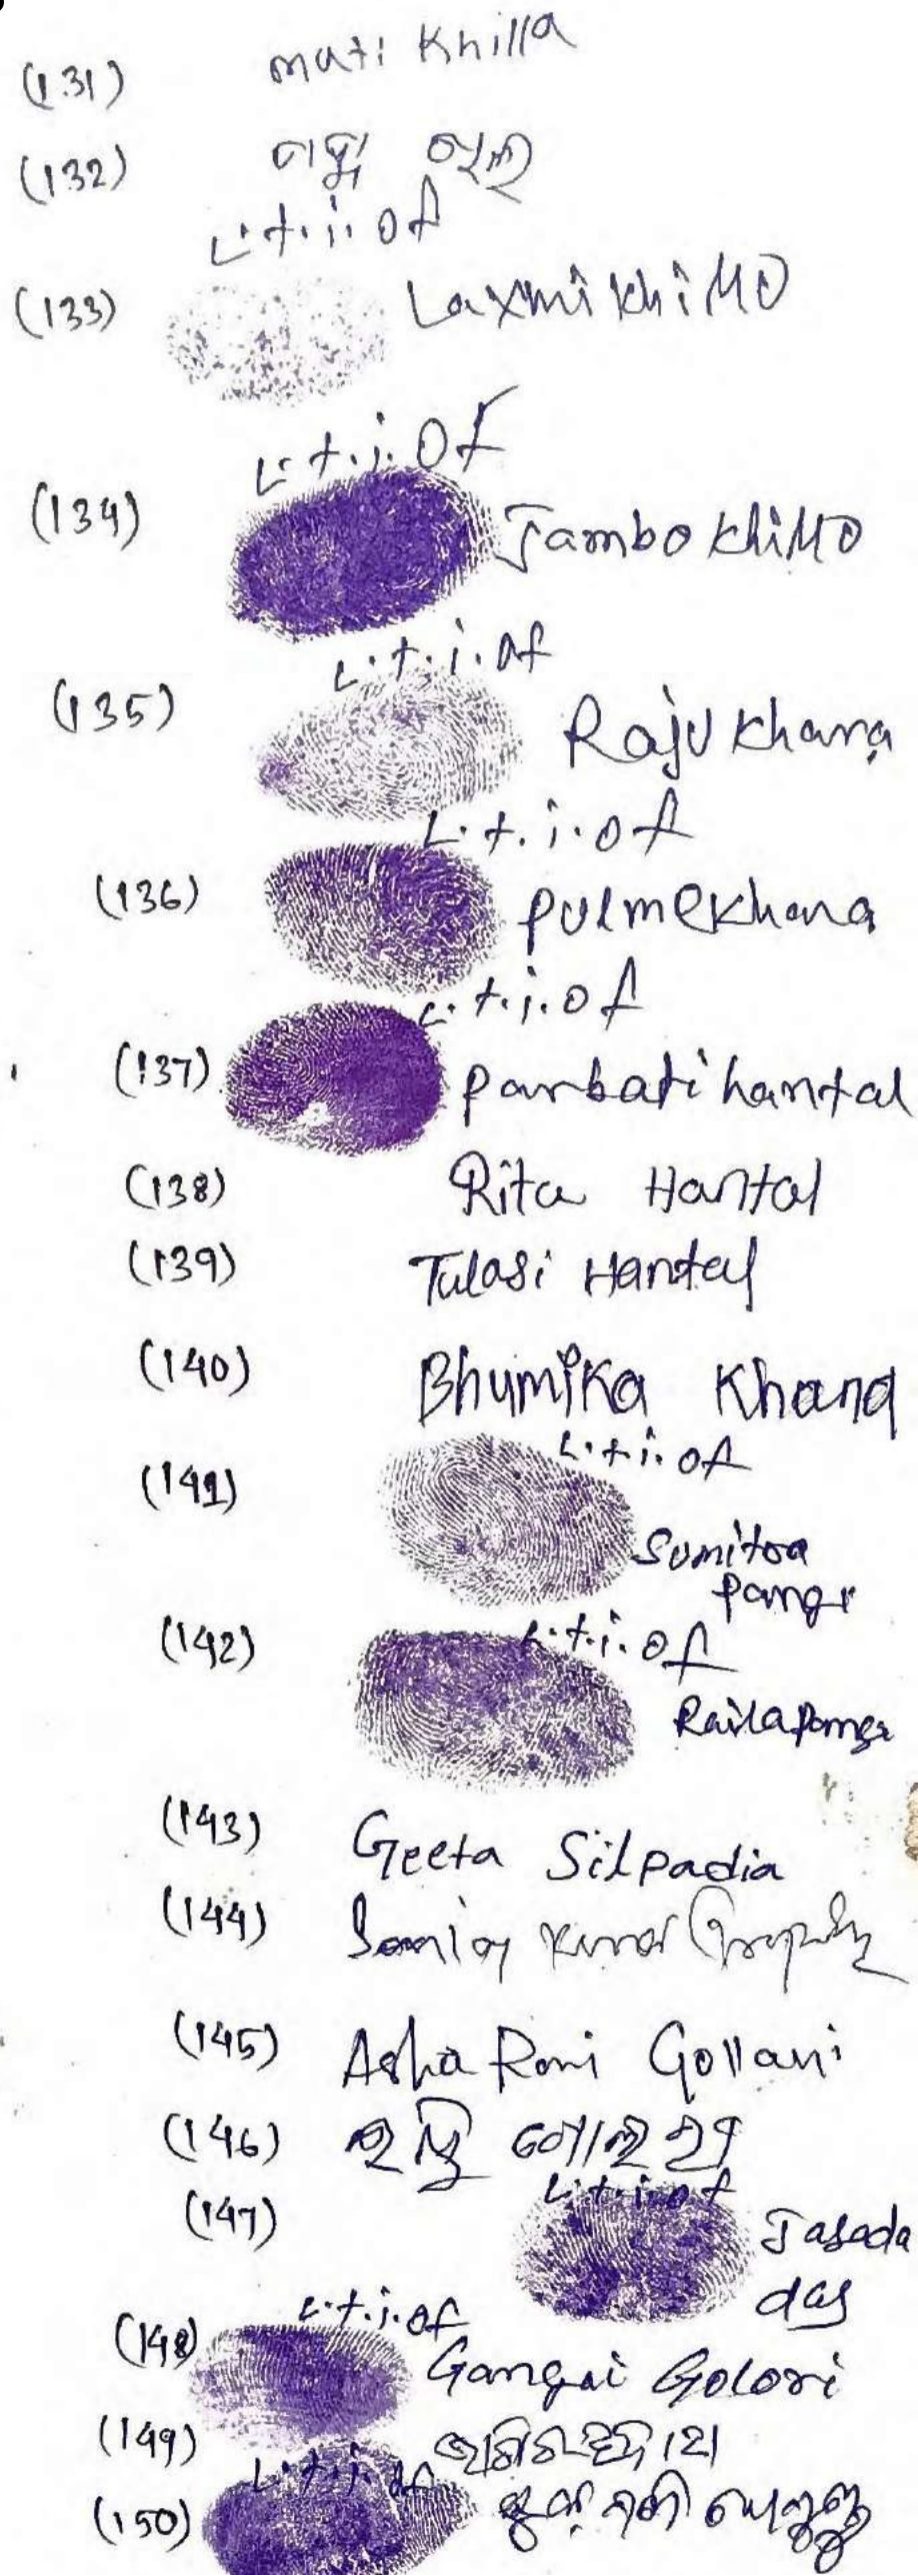 (131) mati Khilla
(132)
L.t.i. of
(133) Laxmi khillo
L.t.i. of
(134) Jambo khillo
L.t.i. of
(135) Raju khara
L.t.i. of
(136) pulme khara
L.t.i. of
(137) parbati hantal
(138) Rita Hantal
(139) Tulasi Hantal
(140) Bhumika Khara
L.t.i. of
(141) Sumitra
pangi
L.t.i. of
(142) Raila pangi
(143) Geeta Silpadia
(144)
(145) Asha Rani Gollari
(146)
L.t.i. of
(147) Jasada
das
L.t.i. of
(148) Gangai Golori
(149)
L.t.i. of
(150)